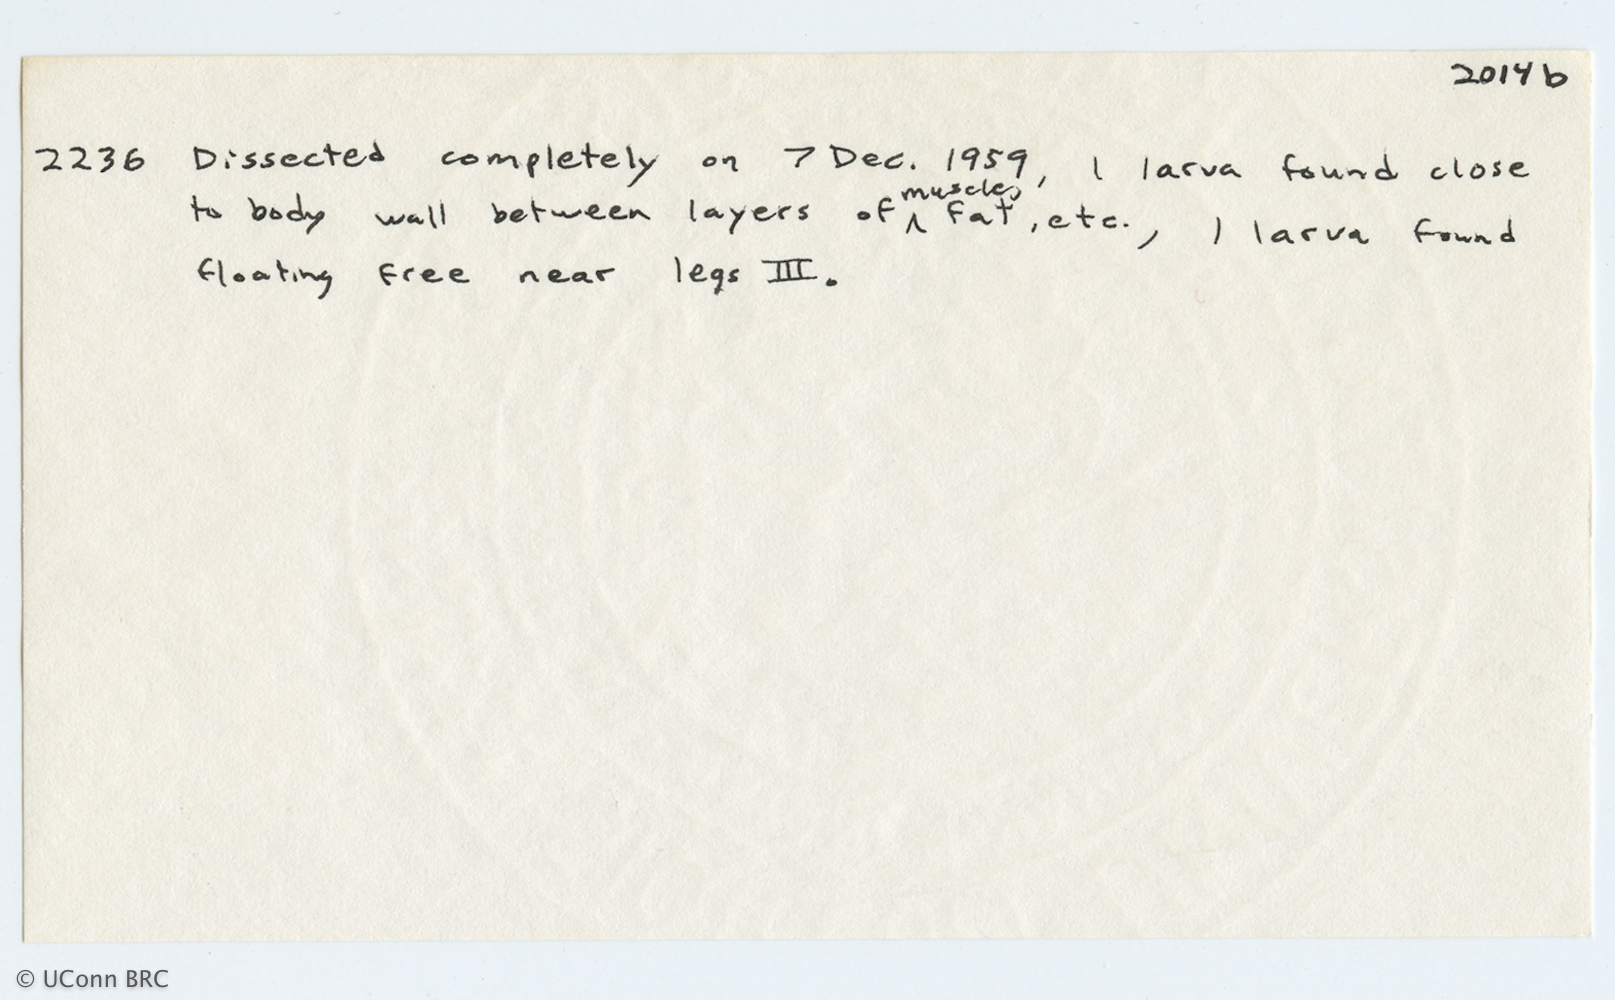 2014 b
2236 Dissected completely on 7 Dec. 1959, 1 larva found close
to body wall between layers of ^ muscles, fat, etc., 1 larva found
floating free near legs III.
© UConn BRC